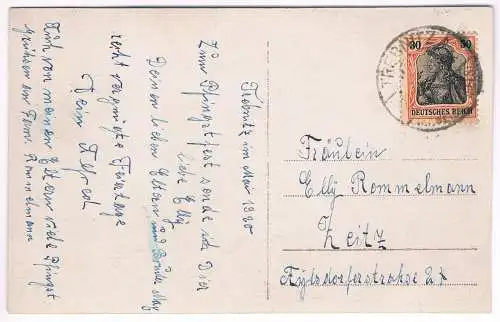 Trebnitz im Mai 1920
Liebe Elly
Zum Pfingstfest sende ich Dir
Deinen lieben Eltern und Bruder May
recht vergnügte Feiertage
Dein Alfred
Auch von meinen Eltern viele Pfingst
an Fam. Rommelmann
30 30
DEUTSCHES REICH
TREBNITZ
Fräulein
Elly Rommelmann
Zeitz